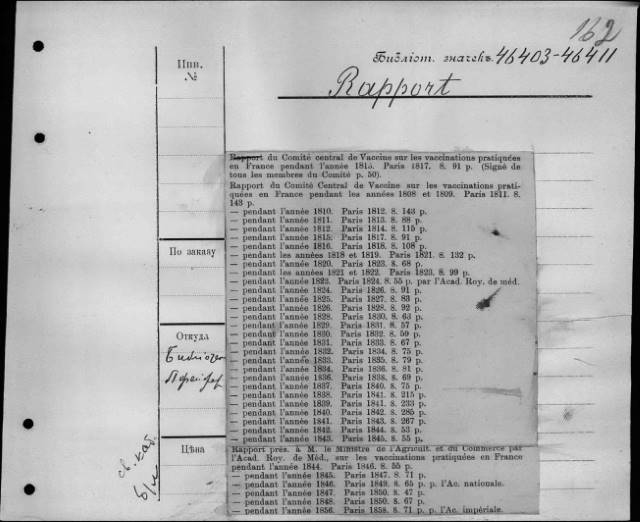 162
Библіот. значекъ 46403-46411
Rapport
Инв.
№
Rapport du Comité central de Vaccine sur les vaccinations pratiquées
en France pendant l'année 1815. Paris 1817. 8. 91 p. (Signé de
tous les membres du Comité p. 50).
Rapport du Comité Central de Vaccine sur les vaccinations prati-
quées en France pendant les années 1808 et 1809. Paris 1811. 8.
143 p.
— pendant l'année 1810. Paris 1812. 8. 143 p.
— pendant l'année 1811. Paris 1813. 8. 88 p.
— pendant l'année 1812. Paris 1814. 8. 115 p.
— pendant l'année 1815. Paris 1817. 8. 91 p.
— pendant l'année 1816. Paris 1818. 8. 108 p.
— pendant les années 1818 et 1819. Paris 1821. 8. 132 p.
— pendant l'année 1820. Paris 1823. 8. 68 p.
— pendant les années 1821 et 1822. Paris 1823. 8. 99 p.
— pendant l'année 1823. Paris 1824. 8. 55 p. par l'Acad. Roy. de méd.
— pendant l'année 1824. Paris 1826. 8. 91 p.
— pendant l'année 1825. Paris 1827. 8. 83 p.
— pendant l'année 1826. Paris 1828. 8. 92 p.
— pendant l'année 1828. Paris 1830. 8. 63 p.
— pendant l'année 1829. Paris 1831. 8. 57 p.
— pendant l'année 1830. Paris 1832. 8. 59 p.
— pendant l'année 1831. Paris 1833. 8. 67 p.
— pendant l'année 1832. Paris 1834. 8. 75 p.
— pendant l'année 1833. Paris 1835. 8. 79 p.
— pendant l'année 1834. Paris 1836. 8. 81 p.
— pendant l'année 1836. Paris 1838. 8. 69 p.
— pendant l'année 1837. Paris 1840. 8. 75 p.
— pendant l'année 1838. Paris 1841. 8. 215 p.
— pendant l'année 1839. Paris 1841. 8. 233 p.
— pendant l'année 1840. Paris 1842. 8. 285 p.
— pendant l'année 1841. Paris 1843. 8. 267 p.
— pendant l'année 1842. Paris 1844. 8. 53 p.
— pendant l'année 1843. Paris 1845. 8. 55 p.
Rapport prés. à M. le Ministre de l'Agricult. et du Commerce par
l'Acad. Roy. de Méd., sur les vaccinations pratiquées en France
pendant l'année 1844. Paris 1846. 8. 55 p.
— pendant l'année 1845. Paris 1847. 8. 71 p.
— pendant l'année 1846. Paris 1849. 8. 65 p. p. l'Ac. nationale.
— pendant l'année 1847. Paris 1850. 8. 47 p.
— pendant l'année 1848. Paris 1850. 8. 67 p.
— pendant l'année 1856. Paris 1858. 8. 71 p. p. l'Ac. impériale.
По заказу
Откуда
Цѣна
св. кат.